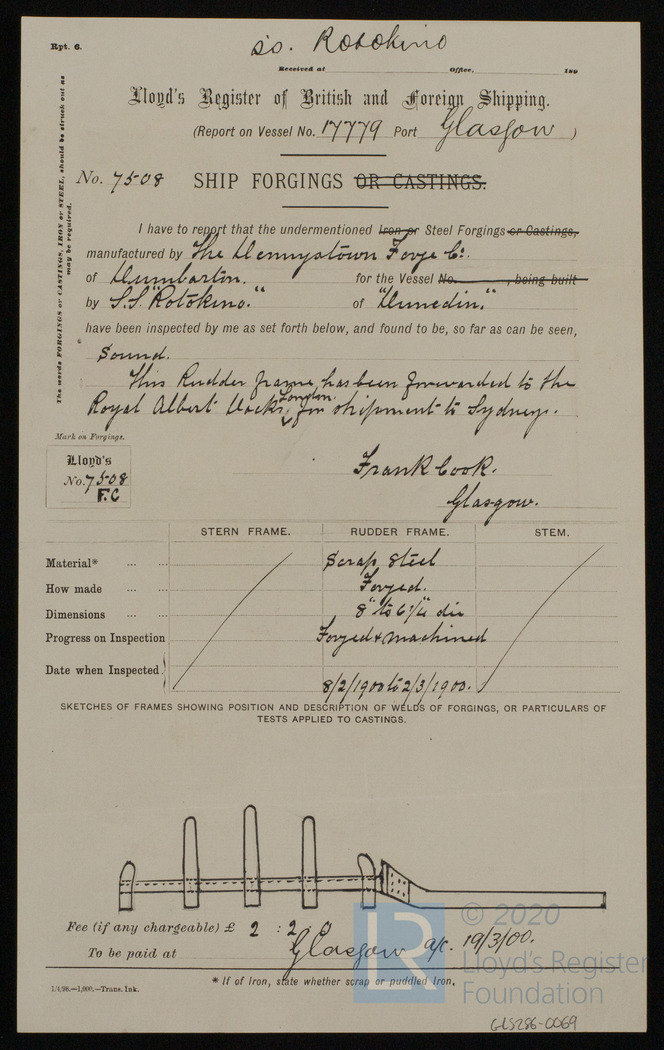 Rpt. 6.
S.S. Rotokino
Received at Office, 189
Lloyd's Register of British and Foreign Shipping.
(Report on Vessel No. 17779 Port Glasgow)
No. 7508 SHIP FORGINGS OR CASTINGS.
The words FORGINGS or CASTINGS, IRON or STEEL, should be struck out as may be required.
I have to report that the undermentioned Iron or Steel Forgings or Castings,
manufactured by The Dennystown Forge Co.
of Dumbarton. for the Vessel No. , being built
by S.S. "Rotokino." of "Dunedin."
have been inspected by me as set forth below, and found to be, so far as can be seen,
Sound.
This Rudder frame has been forwarded to the
Royal Albert Docks, London. for shipment to Sydney.
Mark on Forgings.
Lloyd's
No. 7508
F.C
Frank Cook.
Glasgow.
STERN FRAME. RUDDER FRAME. STEM.
Material* ... ... Scrap Steel
How made ... ... Forged.
Dimensions ... ... 8" to 6 1/4 dia
Progress on Inspection Forged & machined
Date when Inspected} 8/2/1900 to 2/3/1900.
SKETCHES OF FRAMES SHOWING POSITION AND DESCRIPTION OF WELDS OF FORGINGS, OR PARTICULARS OF
TESTS APPLIED TO CASTINGS.
Fee (if any chargeable) £ 2 : 2 . 0
To be paid at Glasgow a/c. 19/3/00.
* If of Iron, state whether scrap or puddled Iron,
1/4/98.—1,000.—Trans. Ink.
LR
© 2020
Lloyd's Register
Foundation
GLS286-0069